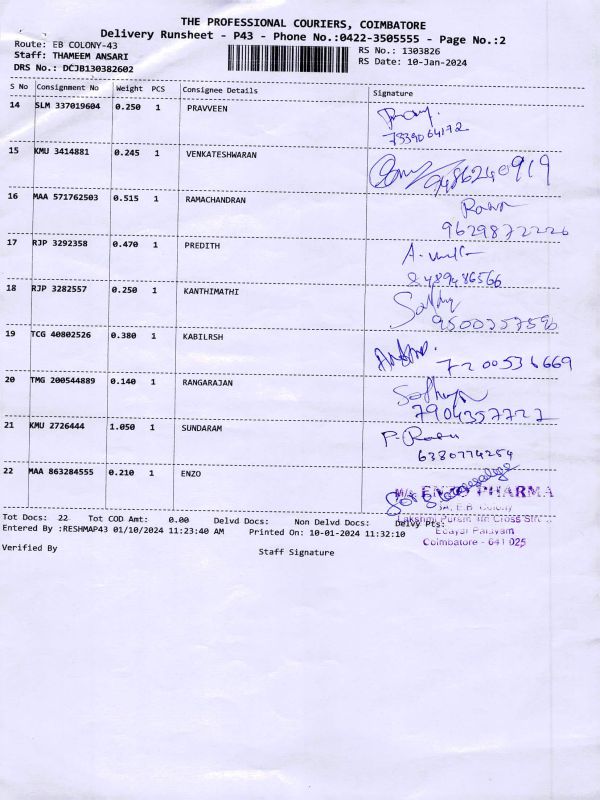 THE PROFESSIONAL COURIERS, COIMBATORE
Delivery Runsheet - P43 - Phone No.:0422-3505555 - Page No.:2
Route: EB COLONY-43
Staff: THAMEEM ANSARI
DRS No.: DCJB130382602
RS No.: 1303826
RS Date: 10-Jan-2024
S No Consignment No Weight PCS Consignee Details Signature
14 SLM 337019604 0.250 1 PRAVVEEN
7339064172
15 KMU 3414881 0.245 1 VENKATESHWARAN
9486240919
16 MAA 571762503 0.515 1 RAMACHANDRAN
9629872226
17 RJP 3292358 0.470 1 PREDITH
8489486566
18 RJP 3282557 0.250 1 KANTHIMATHI
9500357596
19 TCG 40802526 0.380 1 KABILRSH
7200536669
20 TMG 200544889 0.140 1 RANGARAJAN
7904357727
21 KMU 2726444 1.050 1 SUNDARAM
6380774254
22 MAA 863284555 0.210 1 ENZO
M/s ENZO PHARMA
E.B. Colony
Lakshmi Puram 4th Cross
Edayar Palayam
Coimbatore - 641 025
Tot Docs: 22 Tot COD Amt: 0.00 Delvd Docs: Non Delvd Docs: Delvy Pts:
Entered By :RESHMAP43 01/10/2024 11:23:40 AM Printed On: 10-01-2024 11:32:10
Verified By Staff Signature